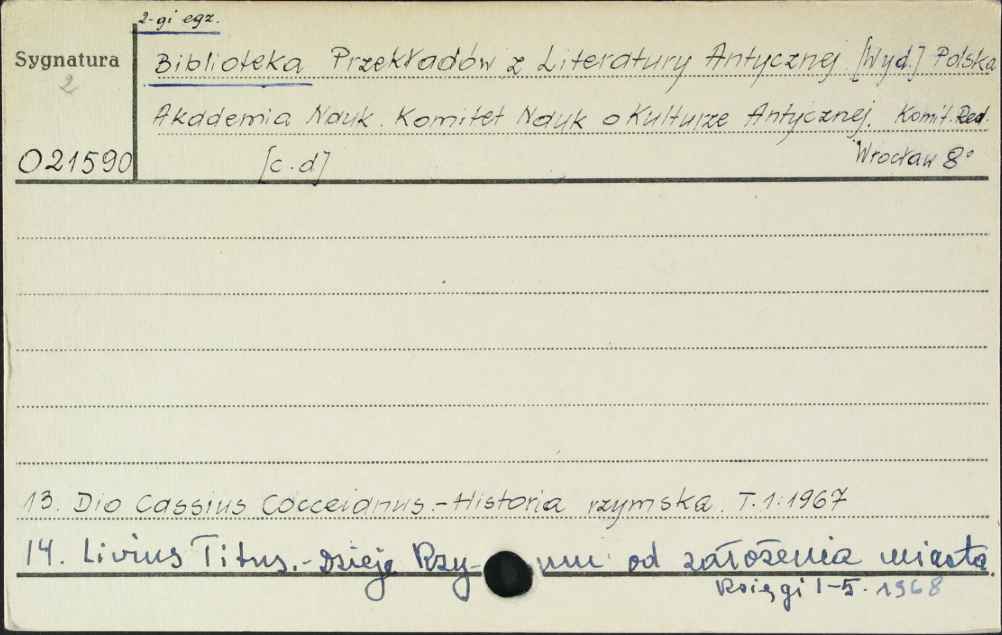 2-gi egz.
Sygnatura
2
O21590
Biblioteka Przekładów z Literatury Antycznej [Wyd.] Polska
Akademia Nauk. Komitet Nauk o Kulturze Antycznej. Komit. Red.
[c.d] Wrocław 8°
13. Dio Cassius Cocceianus.-Historia rzymska. T.1:1967
14. Livius Titus.-Dzieje Rzy- mu od założenia miasta.
Księgi I-5. 1968